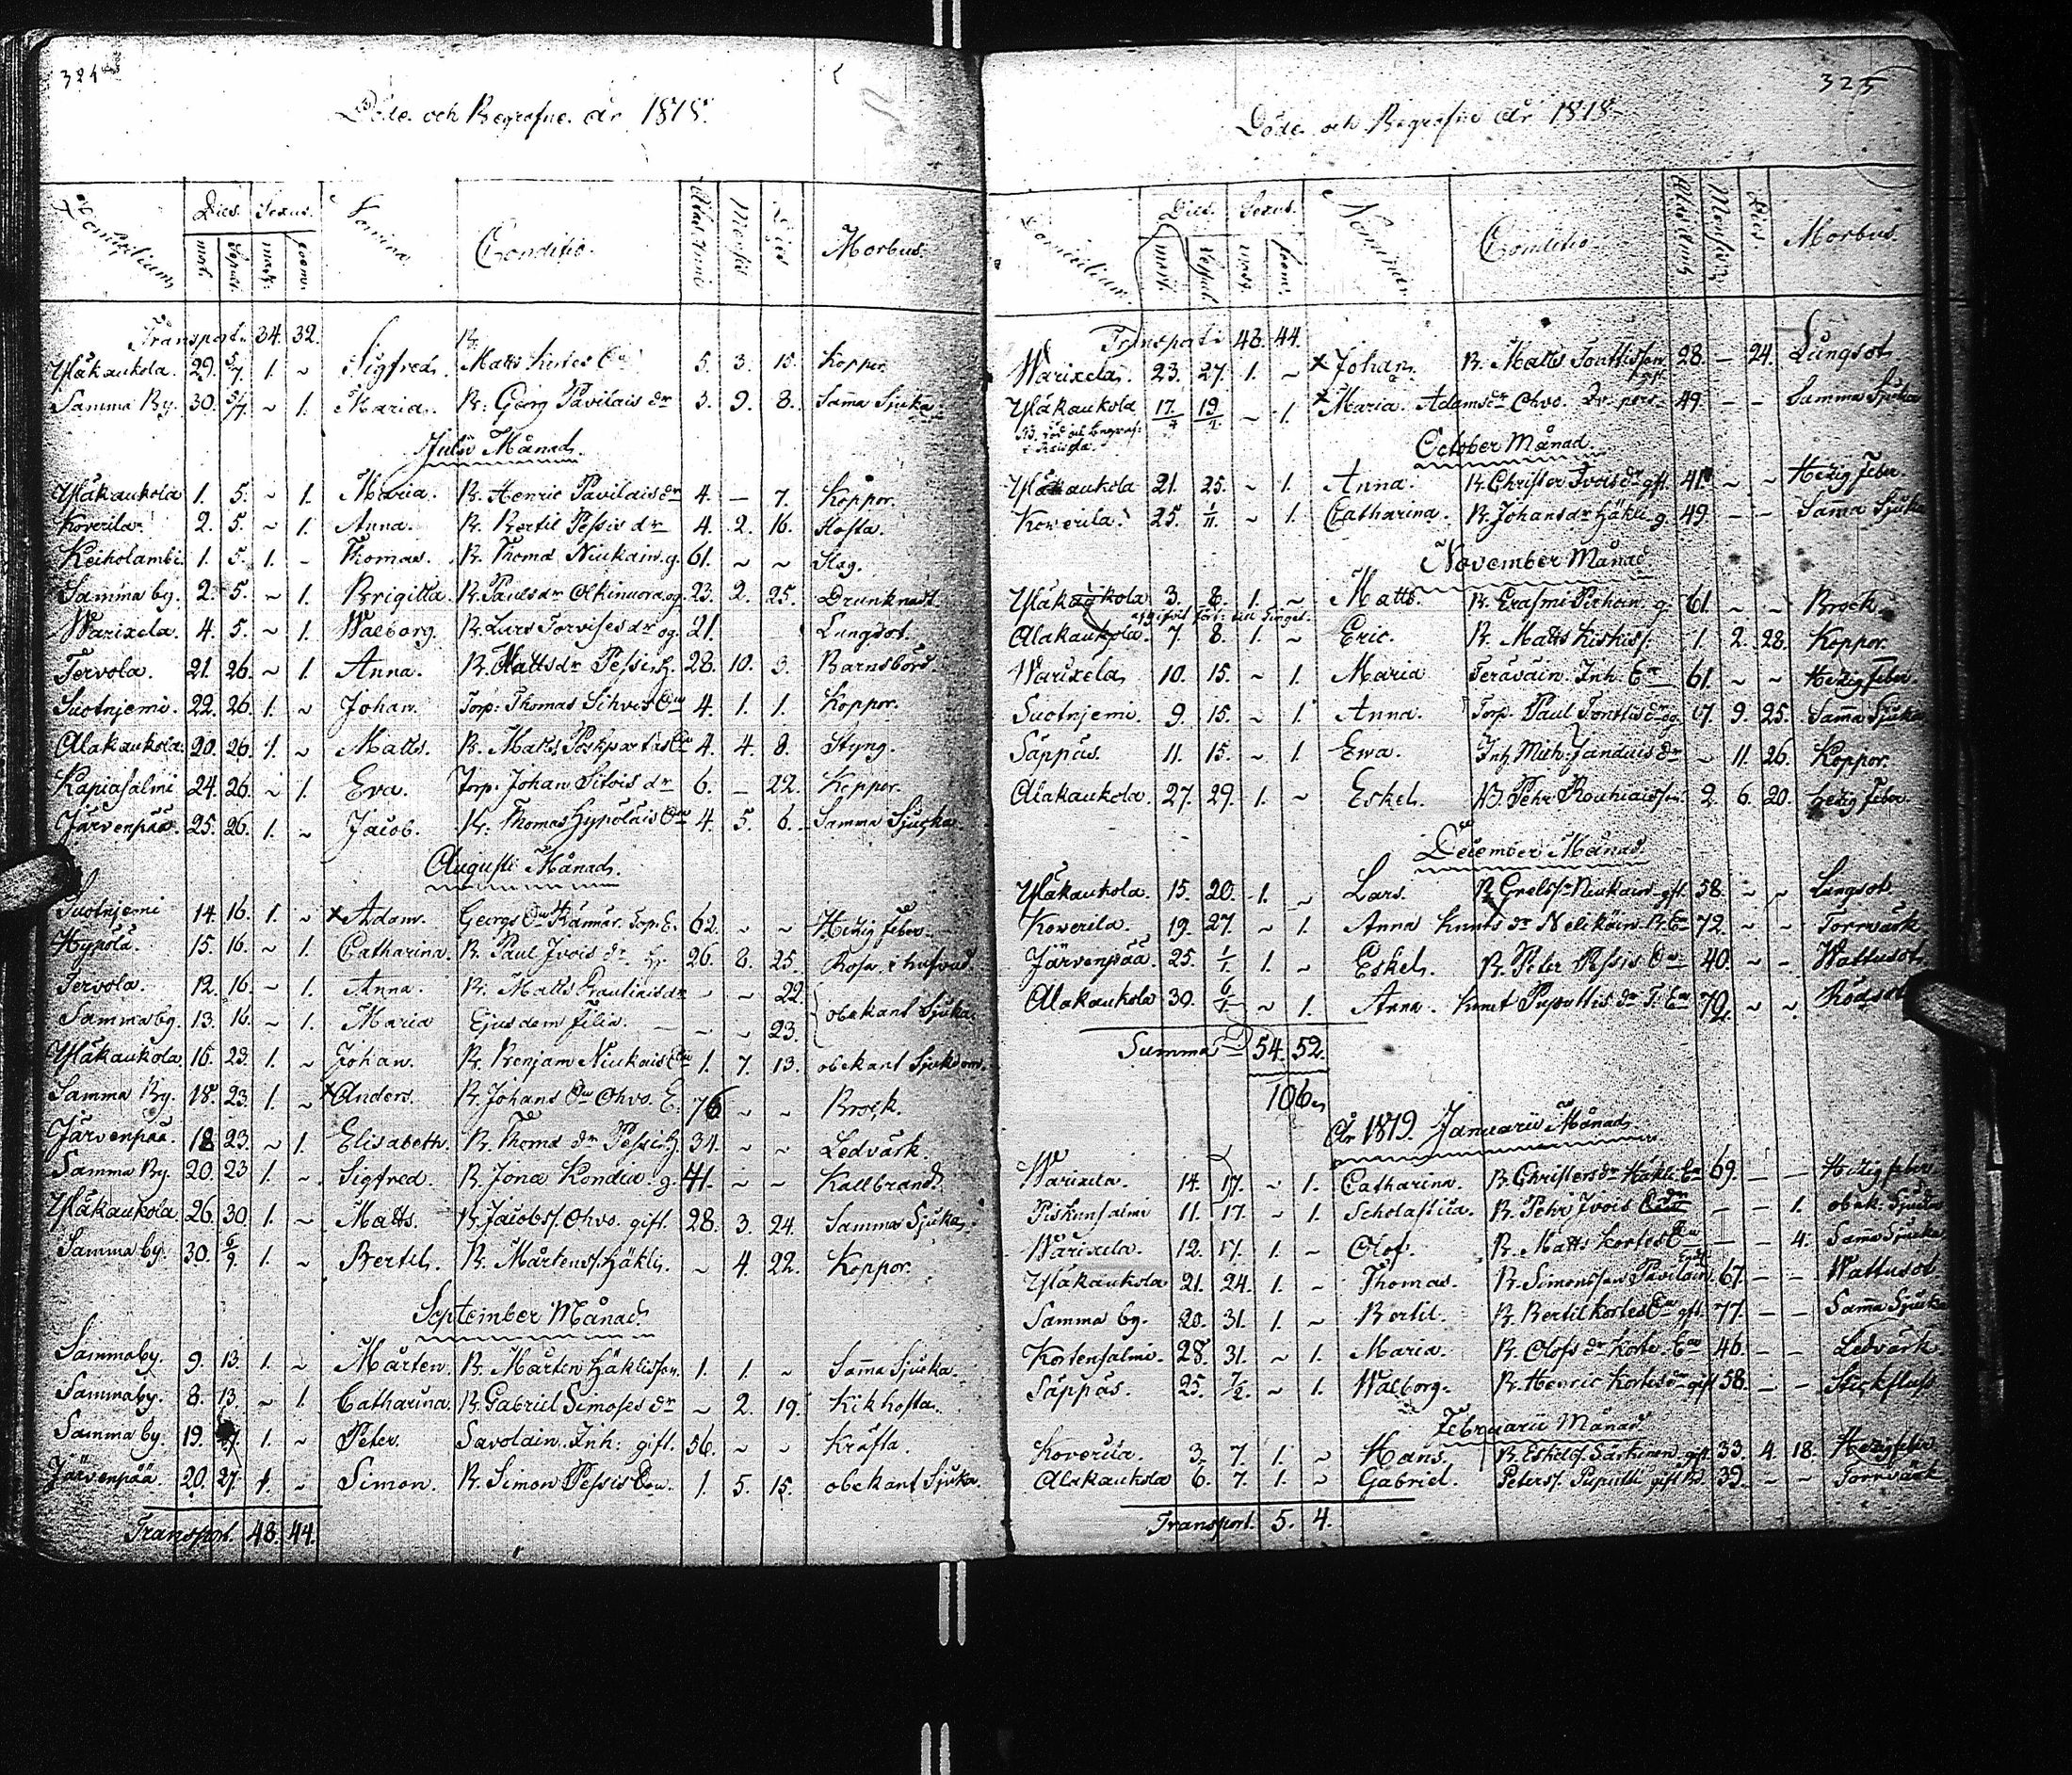 324
Döde och Begrafne år 1818.
Domicilium. Dies. Sexus. Nomina Conditio. Ætat: Anni Mensis Dies Morbus.
mort. Sepult. mask. foem.
Transport. 34. 32.
Yläkaukola. 29. 5/7. 1. ~ Sigfred. B. Matts Kortes Son 5. 3. 15. Koppor.
Samma By. 30. 5/7. ~ 1. Maria. B. Georg Pavilais dr 3. 9. 8. Samma Sjuka.
Julii Månad.
Yläkaukola 1. 5. ~ 1. Maria. B. Henric Pavilais dr 4. — 7. Koppor.
Koverila. 2. 5. ~ 1. Anna. B. Bertil Pessis dr 4. 2. 16. Hosta.
Keiholambi. 1. 5. 1. ~ Thomas. B. Thomas Niukain. g. 61. ~ ~ Slag.
Samma by. 2. 5. ~ 1. Brigitta. B. Pauls dr Olkinuora og. 23. 2. 25. Drunknat.
Warixela. 4. 5. ~ 1. Walborg. B. Lars Torvises dr og. 21. Lungsot.
Tervola. 21. 26. ~ 1. Anna. B. Matts dr Pessi. H. 28. 10. 3. Barnsbörd.
Suotnjemi. 22. 26. 1. ~ Johan. Torp: Thomas Sihvos Son 4. 1. 1. Koppor.
Alakaukola. 20. 26. 1. ~ Matts. B. Matts Son 4. 4. 8. Styng.
Kapiasalmi 24. 26. ~ 1. Eva. Torp. Johan Sitois dr 6. — 22. Koppor.
Järvenpää. 25. 26. 1. ~ Jacob. B. Thomas Hypöläis Son 4. 5. 6. Samma Sjucka
Augusti Månad.
Suotnjemi 14. 16. 1. ~ x Adam. Georgs Son Kämär. Torp. E. 62. ~ ~ Hetzig feber.
Hypölä. 15. 16. ~ 1. Catharina. B. Paul Ivois dr 26. 8. 25. Rosen i hufvud.
Tervola. 12. 16. ~ 1. Anna. B. Matts Rautiais dr ~ ~ 22.
Samma by. 13. 16. ~ 1. Maria Ejusdem filia. ~ ~ 23. obekant Sjuka.
Yläkaukola 16. 23. 1. ~ Johan. B. Benjam Niukais Son 1. 7. 13. obekant Sjukdom.
Samma By. 18. 23. 1. ~ x Anders. B. Johans Son Ohvo. E. 76 ~ ~ Brock.
Järvenpää. 18 23. ~ 1. Elisabeth. B. Thoms dr Pessi. H. 34. ~ ~ Ledvärk.
Samma By. 20. 23 1. ~ Sigfred. B. Jona Kondia. g. 41. ~ ~ Kallbrand.
Yläkaukola. 26. 30. 1. ~ Matts. B. Jacobss. Ohvo. gift. 28. 3. 24. Samma Sjuka.
Samma by. 30. 6/9. 1. ~ Bertil. B. Mårtens s. Häkli. ~ 4. 22. Koppor.
September Månad.
Samma by. 9. 13. 1. ~ Mårten. B. Mårten Häklisson. 1. 1. ~ Samma Sjuka.
Samma by. 8. 13. ~ 1. Catharina. B. Gabriel Simoses dr ~ 2. 19. Kikhosta.
Samma by. 19. 1. ~ Peter. Savolain. Inh: gift. 56. ~ ~ Kräfta.
Järvenpää 20. 27. 1. ~ Simon. B. Simon Pessis Son. 1. 5. 15. obekant Sjuka.
Transport. 48. 44.
325
Döde och Begrafne år 1818.
Domicilium. Dies. Sexus. Nomina Conditio. Morbus.
mort. Sepul. mask. foem.
Transport. 48. 44.
Warixela. 23. 27. 1. ~ x Johan. B. Matts Tonttisson 28. — 24. Lungsot.
Yläkaukola 17/7 19/7 ~ 1. x Maria. Adams dr Ohvo. 49. — — Samma Sjuka
October Månad.
Yläkaukola 21. 25. ~ 1. Anna. B. Christer Ivois dr gft. 41. ~ ~ Hetzig feber.
Koverila. 25. 1/11. ~ 1. Catharina. B. Johans dr Häkli. g. 49. — — Samma Sjuka
November Månad
Yläkaukola 3. 8. 1. ~ Matts. B. Erasmi Pirhoin. g. 61. ~ ~ Brock.
Alakaukola. 7. 8. 1. ~ Eric. B. Matts Kiskis s. 1. 2. 28. Koppor.
Warixela 10. 15. ~ 1. Maria Teräväin. Inh. E. 61. ~ ~ Hetzig feber
Suotnjemi. 9. 15. ~ 1. Anna. Torp. Paul Tonttis dr og. 17. 9. 25. Samma Sjuka
Säppäs. 11. 15. ~ 1 Ewa. Inh. Mich. Janduis dr ~ 11. 26. Koppor.
Alakaukola. 27. 29. 1. ~ Eskel. B. Pehr Rouhiais son. 2. 6. 20. hetzig feber
December Månad.
Yläkaukola. 15. 20. 1. ~ Lars. B. Grels s. Niukain. gft. 58. ~ ~ Lungsot
Koverila. 19. 27. ~ 1. Anna Knuts dr Nelikäin. B. E. 72. ~ ~ Torrvärk
Järvenpää 25. 1/1. 1. ~ Eskel. B. Peter Pessis Son 40. ~ ~ Wattusot.
Alakaukola 30. 6/1. ~ 1. Anna. Knut Puputtis dr T. E. 70. ~ ~ Rödsot
Summa 54. 52.
106
År 1819. Januarii Månad.
Warixela. 14. 17. ~ 1. Catharina. B. Christers dr Häkli. 69. — — Hetzig feber
Piskunsalmi 11. 17. ~ 1. Scholastica. B. Pehr Ivois dr — — 1. obek: Sjuka
Warixela. 12. 17. 1. ~ Olof. B. Matts Kortes Son — — 4. Samma Sjucka
Yläkaukola 21. 24. 1. ~ Thomas. B. Simonsson Pavilain 67. — — Wattusot
Samma by. 20. 31. 1. ~ Bertil. B. Bertil Kortes Son gft. 77. — — Samma Sjucka
Kortensalmi. 28. 31. ~ 1. Maria. B. Olofs dr Korte. 46. — — Ledvärk
Säppäs. 25. 7/2. ~ 1. Walborg. B. Henric Kortes dr gift 58. — — Stickfluss
Februarii Månad
Koverila. 3. 7. 1. ~ Hans. B. Eskel s. Särkinen gift. 33. 4. 18. Hetzig feber
Alakaukola 6. 7. 1. ~ Gabriel. Peters s. Puputti gift B. 39. ~ ~ Torrvärk
Transport. 5. 4.